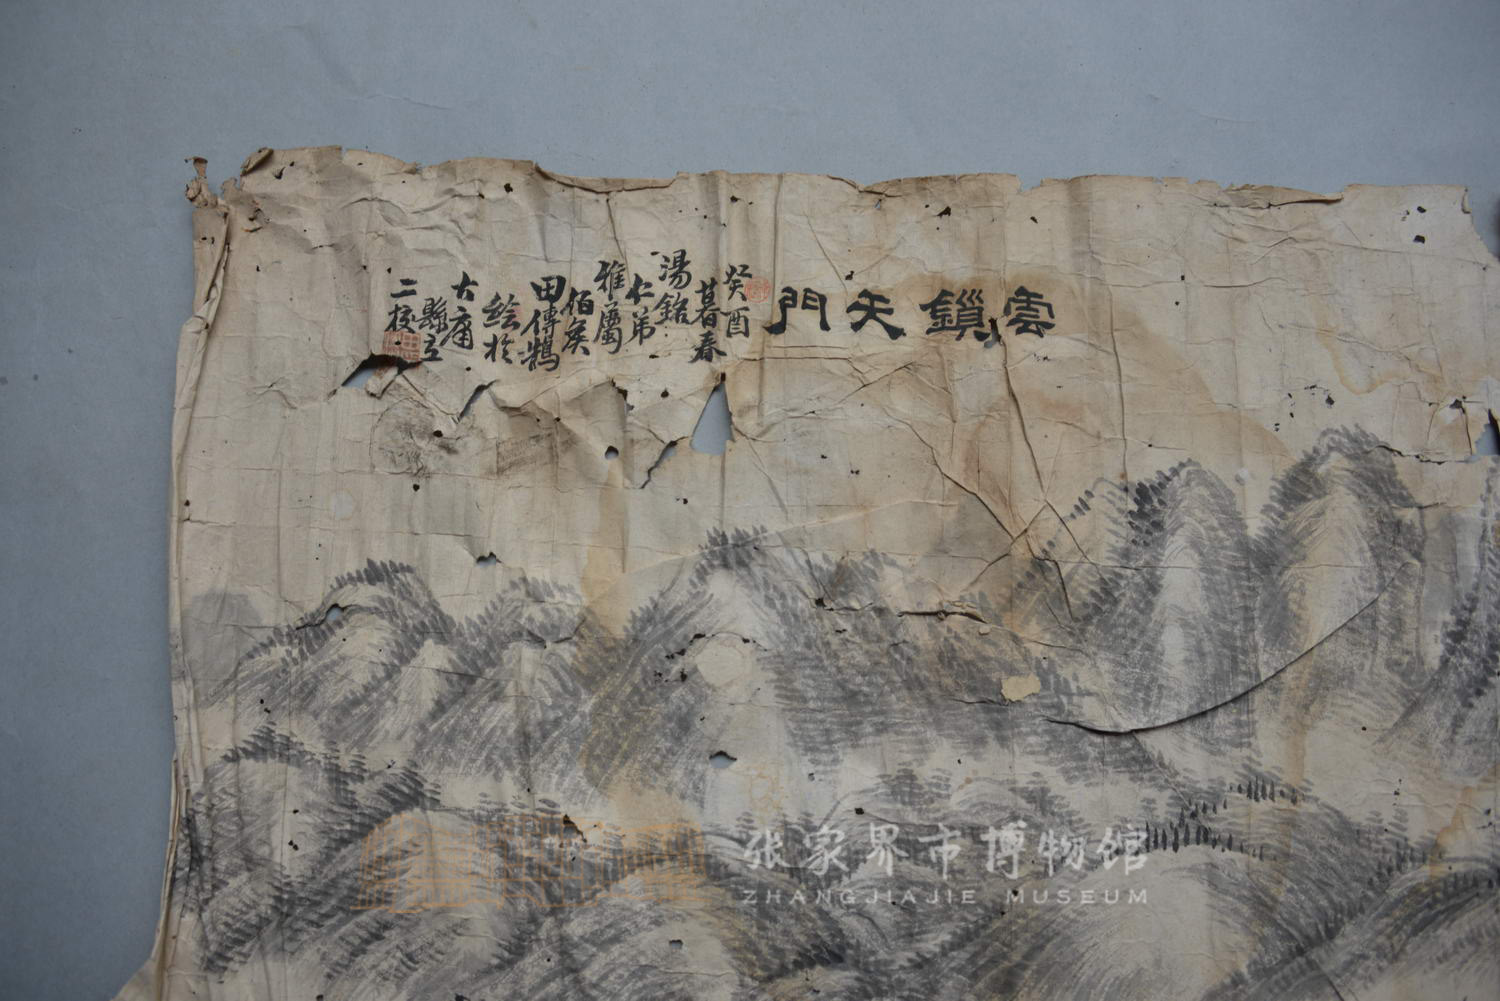 雲鎖天門
癸酉
暮春
湯銘
仁弟
雅屬
伯矦
田傳鹅
繪於
古庸
縣立
二校
张家界市博物馆
ZHANGJIAJIE MUSEUM